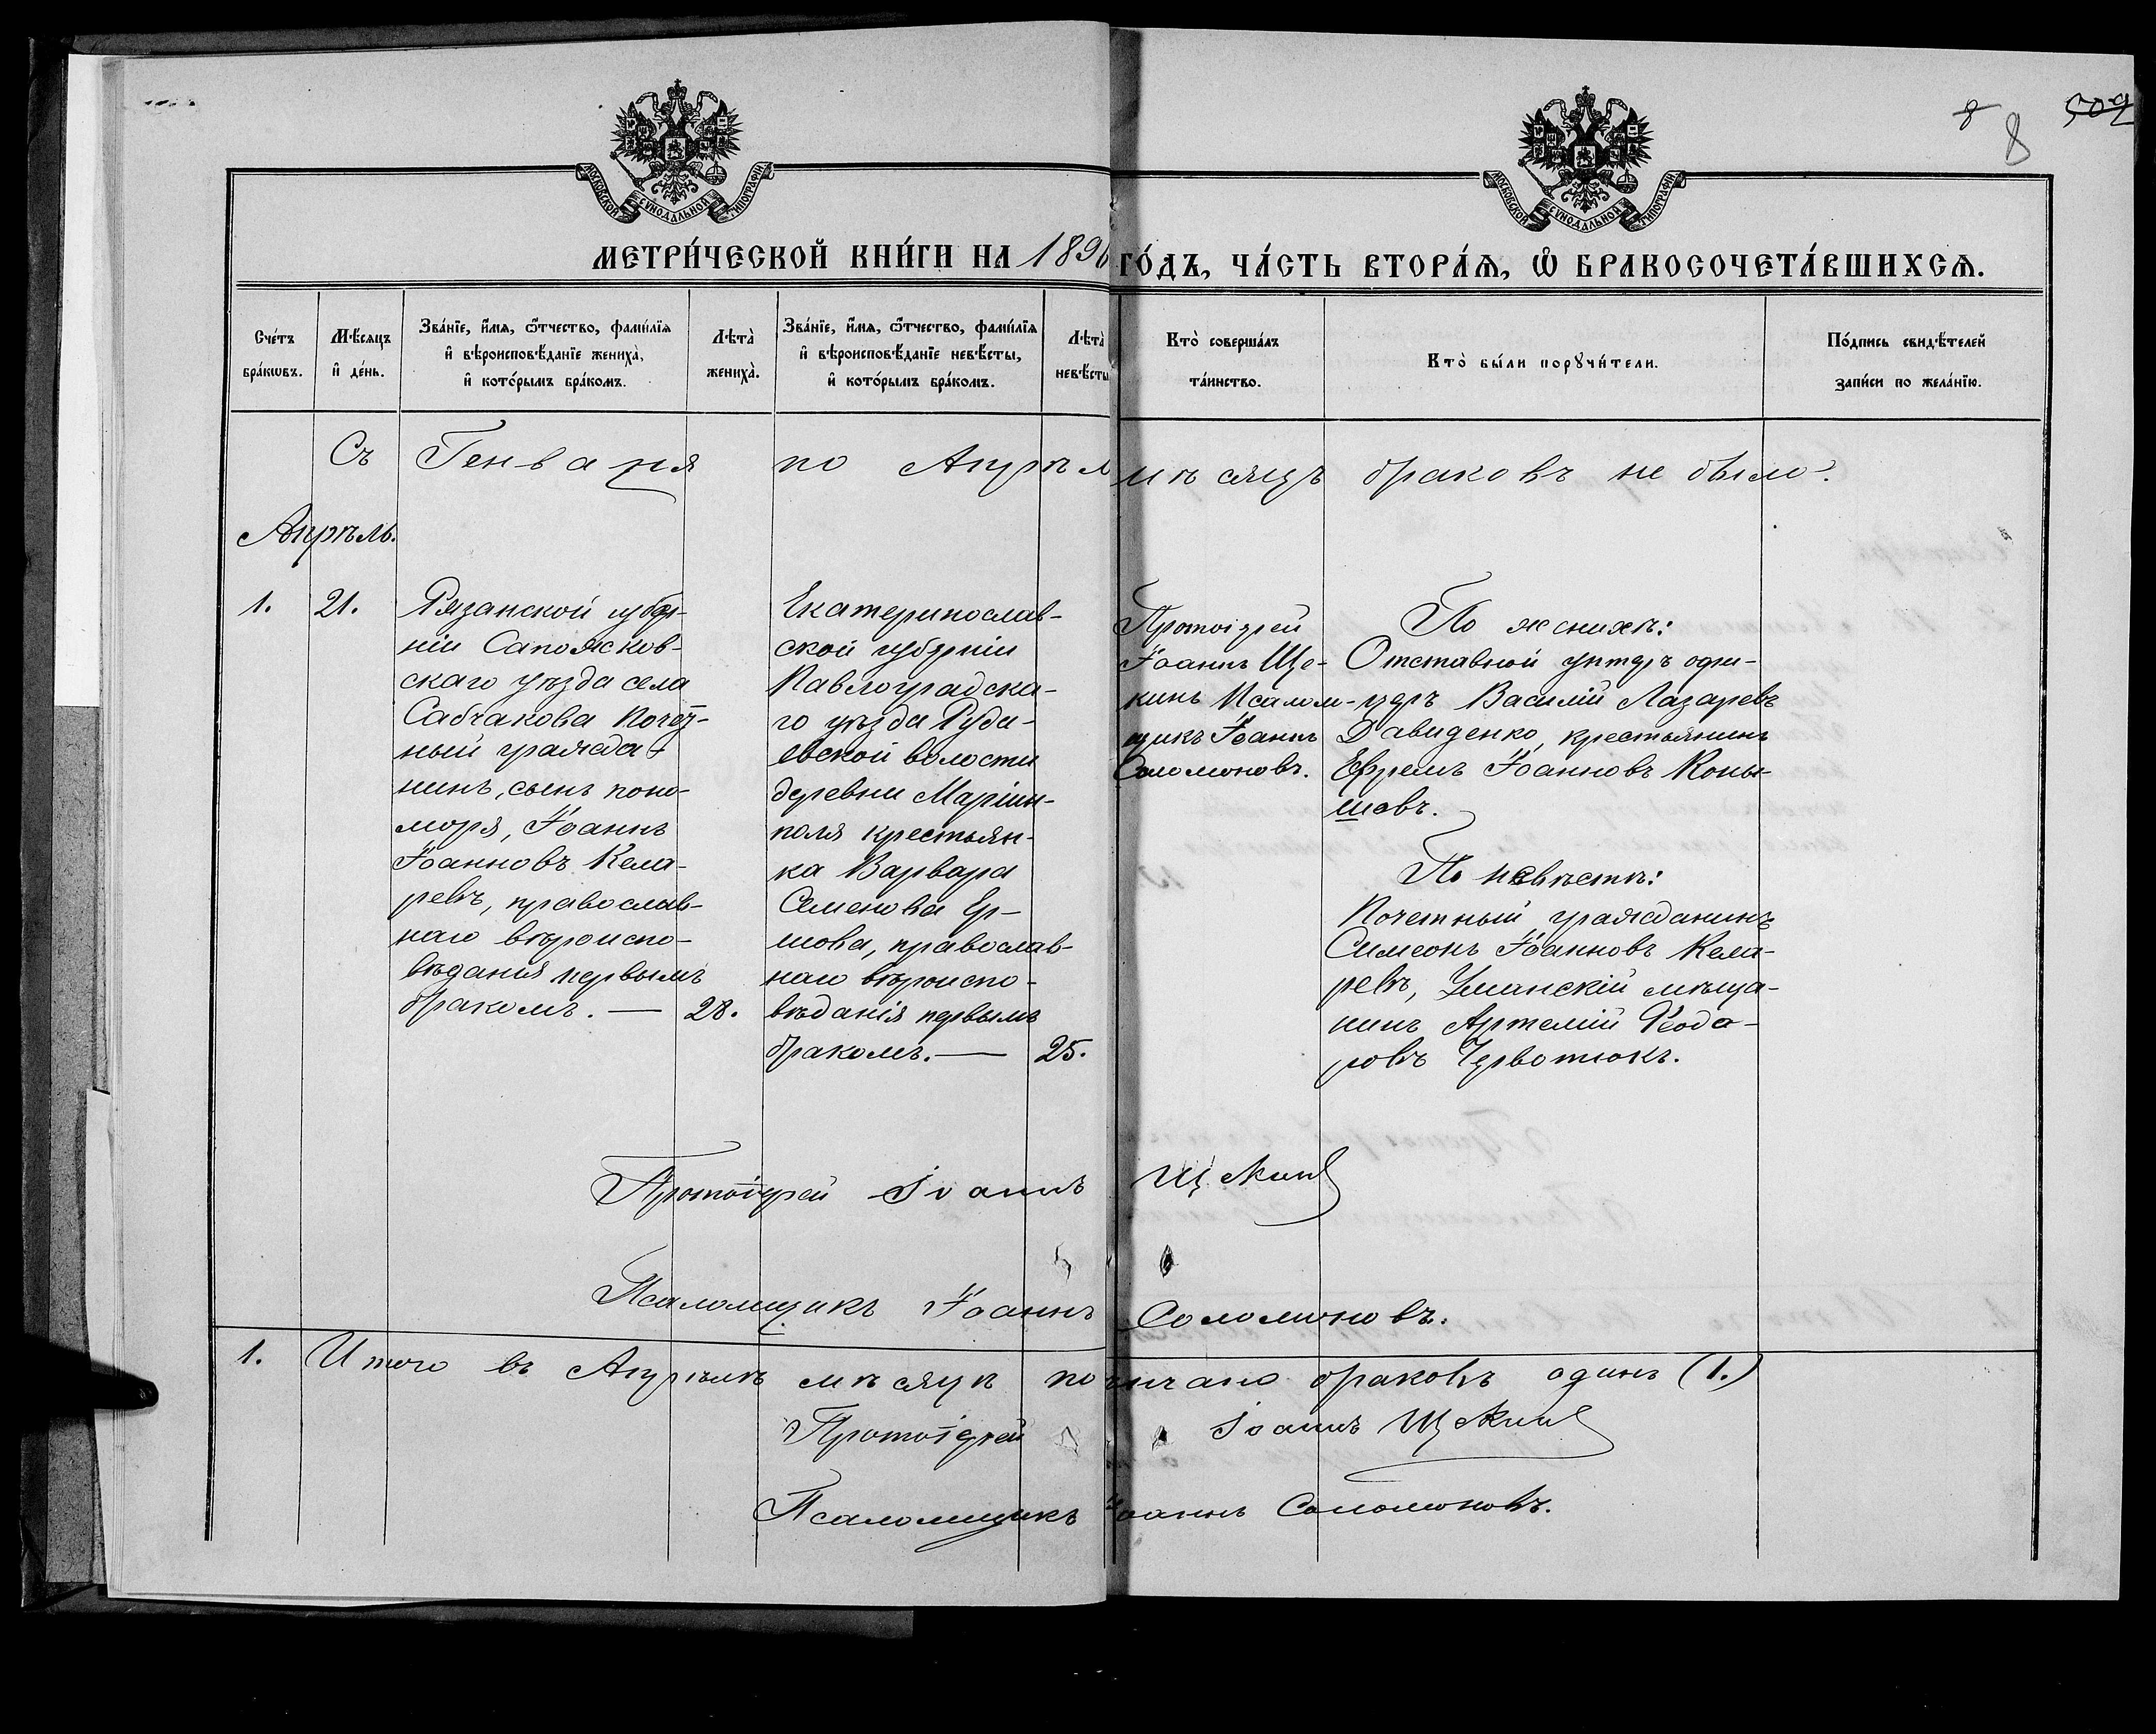 8 8 509
МОСКОВСКОЙ СѴНОДАЛЬНОЙ ТИПОГРАФІИ
МОСКОВСКОЙ СѴНОДАЛЬНОЙ ТИПОГРАФІИ
МЕТРИ́ЧЕСКОЙ КНИ́ГИ НА 1896 ГО́ДЪ, ЧА́СТЬ ВТОРА́Ѧ, Ѽ БРАКОСОЧЕТА́ВШИХСѦ.
Сче́тъ
бра́кωвъ.
Мѣ́сяцъ
и҆ де́нь.
Зва́нїе, и҆́мя, ѻ҆́тчество, фамѝлїя
и҆ вѣроисповѣ́данїе женихà,
и҆ кото́рымъ бра́комъ.
Лѣтà
женихà.
Зва́нїе, и҆́мя, ѻ҆́тчество, фамѝлїя
и҆ вѣроисповѣ́данїе невѣ́сты,
и҆ кото́рымъ бра́комъ.
Лѣтà
невѣ́сты
Ктò соверша́лъ
та́инство.
Ктò бы́ли порꙋчи́тели.
По́дпись свидѣ́телей
запи́си по жела́нїю.
Съ Генваря по Апрѣл мѣсяцъ браковъ не было.
Апрѣль.
1. 21.
Рязанской губер-
ніи Сапожков-
скаго уѣзда села
Сабчакова Почет-
ный гражда-
нинъ, сынъ поно-
моря, Іоаннъ
Іоанновъ Кела-
ревъ, православ-
наго вѣроиспо-
вѣданія первымъ
бракомъ. — 28.
Екатеринослав-
ской губерніи
Павлоградска-
го уѣзда Руда-
евской волости
деревни Маріин-
поля крестьян-
ка Варвара
Семенова Ер-
шова, православ-
наго вѣроиспо-
вѣданія первымъ
бракомъ. — 25.
Протоіерей
Іоаннъ Ще-
кинъ Псалом-
щикъ Іоаннъ
Соломоновъ.
По женихѣ:
Отставной унтеръ офи-
церъ Василій Лазаревъ
Давиденко, крестьянинъ
Ефремъ Іоанновъ Коны-
шовъ.
По невѣстѣ:
Почетный гражданинъ
Симеонъ Іоанновъ Кела-
ревъ, Уманскій мѣща-
нинъ Артемій Ѳеодо-
ровъ Червотюкъ.
Протоіерей Іоаннъ Щекинъ
Псаломщикъ Іоаннъ Соломоновъ.
1. Итого въ Апрѣлѣ мѣсяцѣ повѣнчано браковъ одинъ (1.)
Протоіерей Іоаннъ Щекинъ
Псаломщикъ Іоаннъ Соломоновъ.